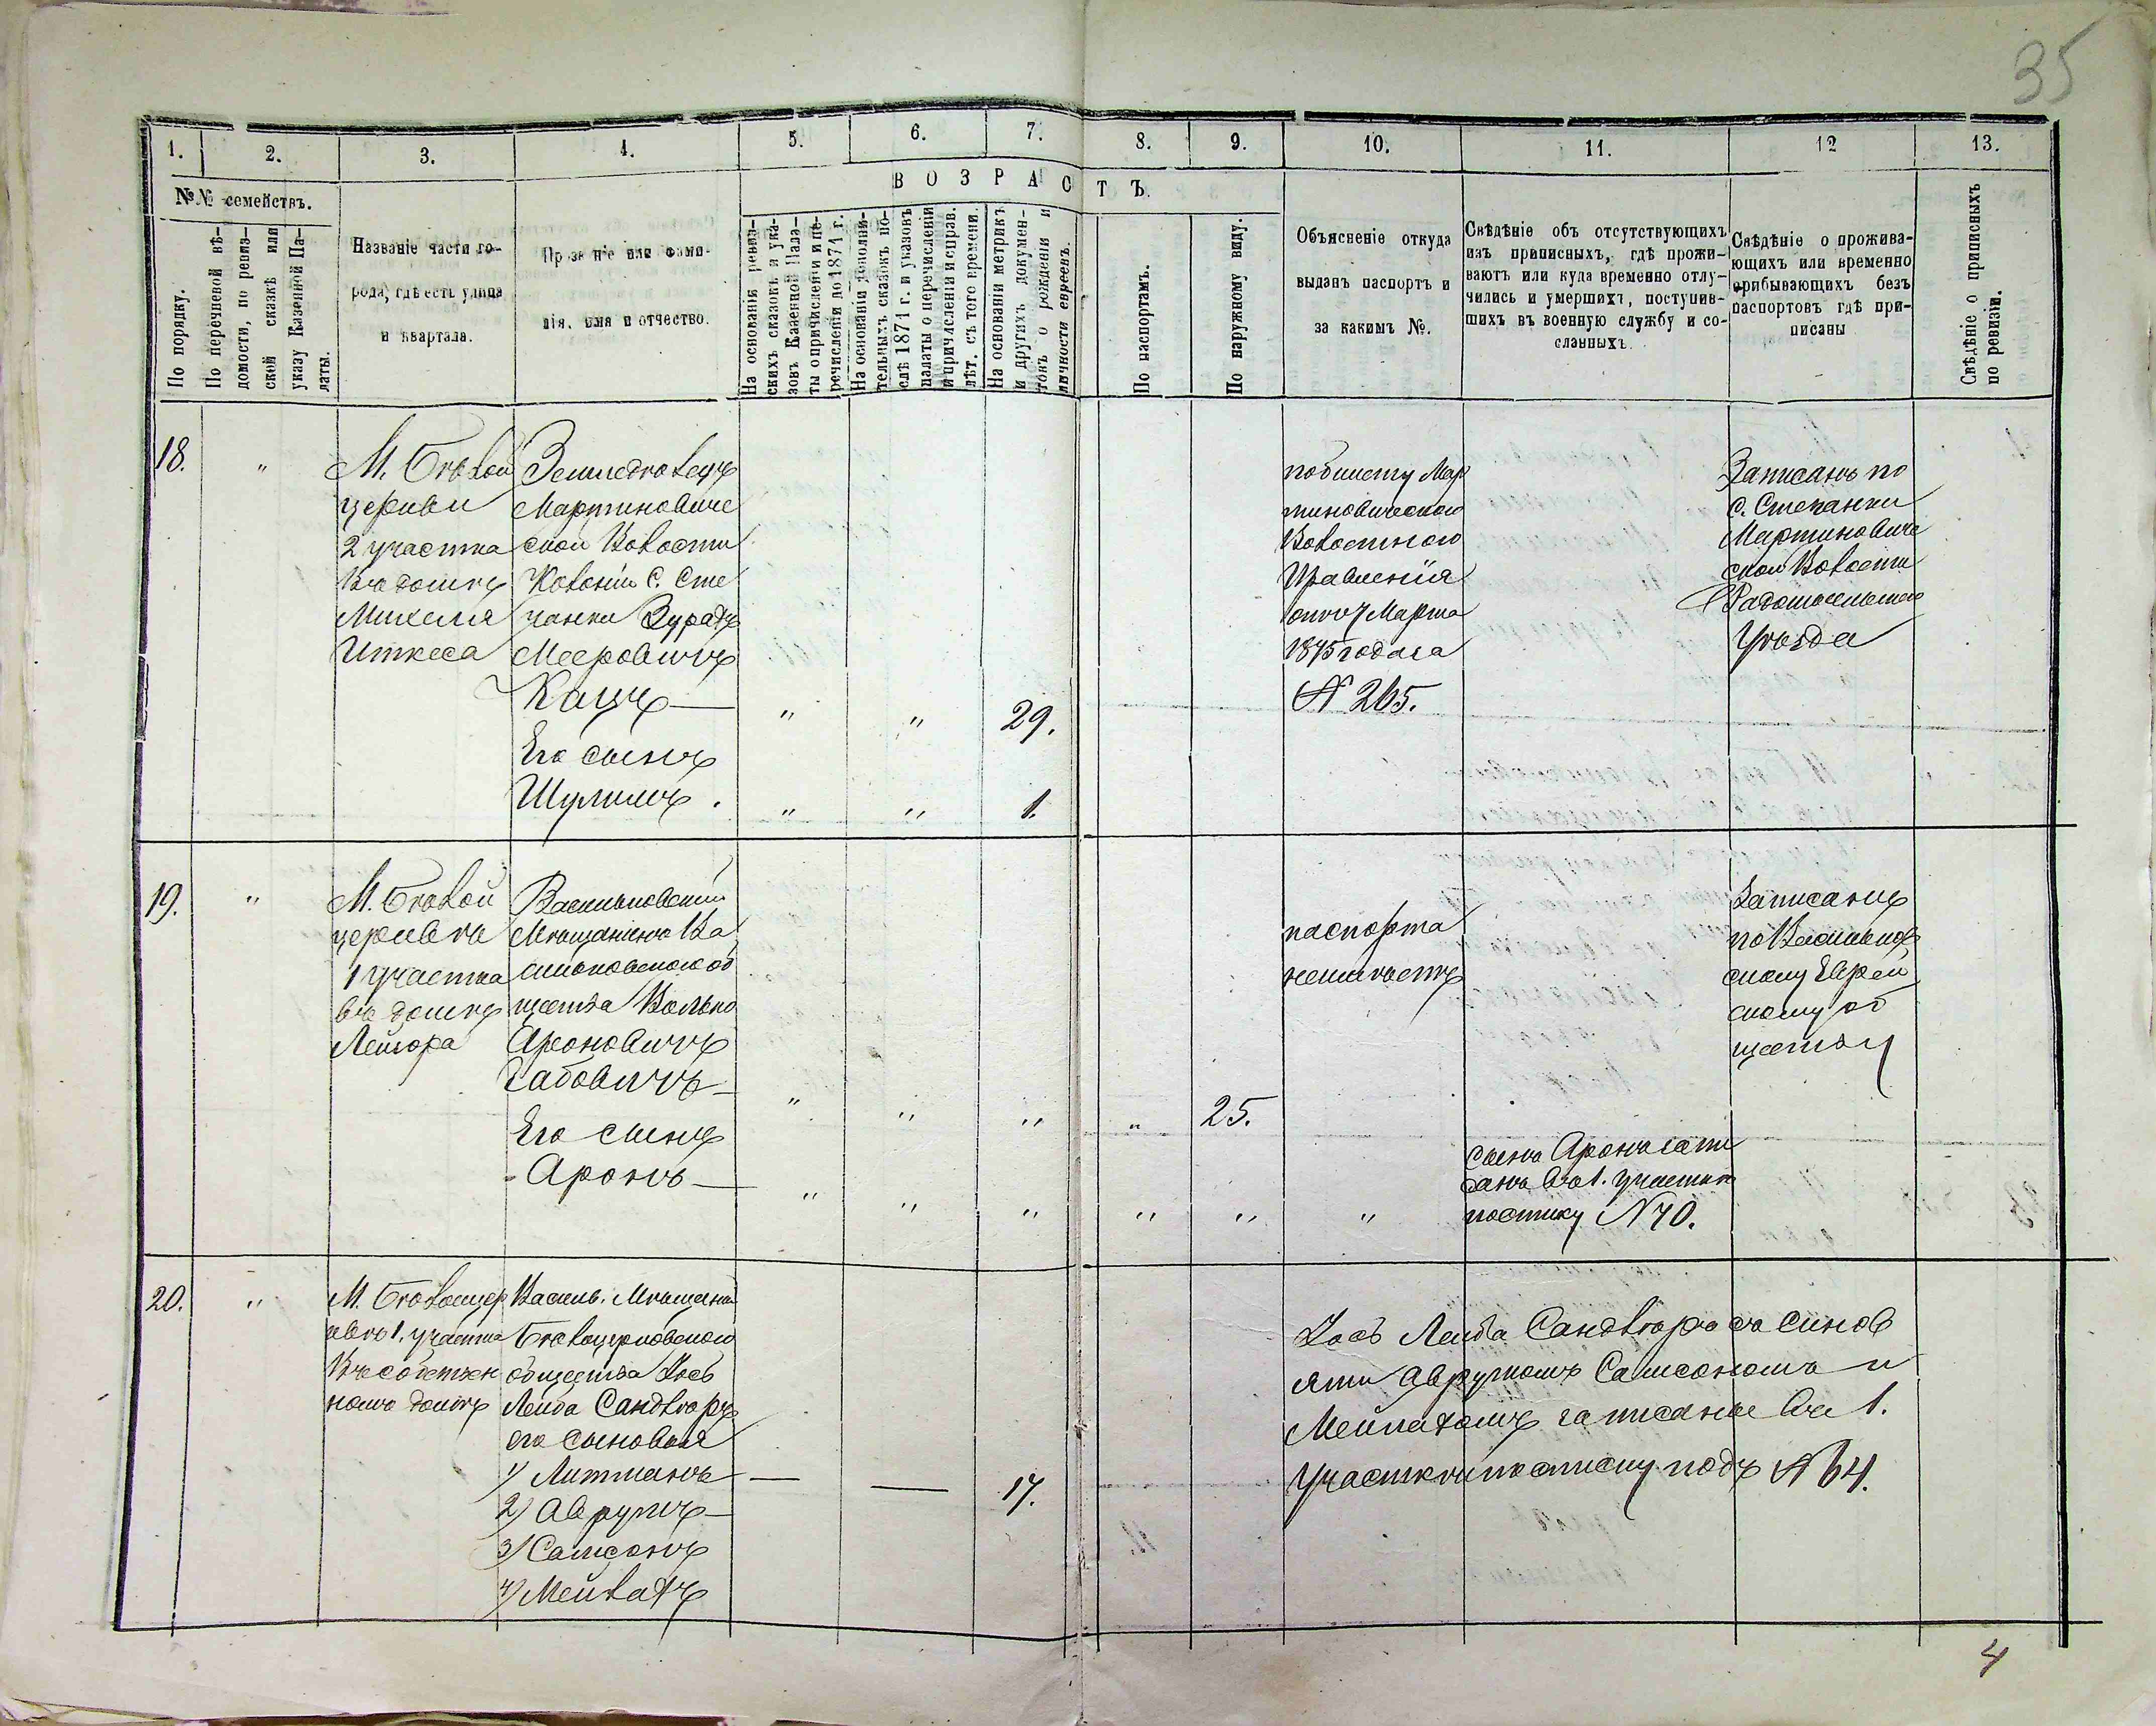 35
1. 2. 3. 4. 5. 6. 7. 8. 9. 10. 11. 12 13.
№№ семействъ.
ВОЗРАСТЪ.
По порядку.
По перечневой вѣ-
домости, по ревиз-
ской сказкѣ или
указу Казенной Па-
латы.
Названіе части го-
рода, гдѣ есть улица
и квартала.
Прозваніе или фами-
лія, имя и отчество.
На основаніи ревиз-
скихъ сказокъ и ука-
зовъ Казенной Пала-
ты о причисленіи и пе-
речисленіи до 1871 г.
На основаніи дополни-
тельныхъ сказокъ по-
слѣ 1871 г. и указовъ
палаты о перечисленіи
и причисленіи и справ.
лѣт. съ того времени.
На основаніи метрикъ
и другихъ докумен-
товъ о рожденіи и
личности евреевъ.
По паспортамъ.
По наружному виду.
Объясненіе откуда
выданъ паспортъ и
за какимъ №.
Свѣдѣніе объ отсутствующихъ
изъ приписныхъ, гдѣ прожи-
ваютъ или куда временно отлу-
чились и умершихъ, поступив-
шихъ въ военную службу и со-
сланныхъ.
Свѣдѣніе о прожива-
ющихъ или временно
прибывающихъ безъ
паспортовъ гдѣ при-
писаны
Свѣдѣніе о приписныхъ
по ревизіи.
18.
"
М. Бѣлой
церкви
2 участка
Въ домѣ
Михеля
Иткеса
Земледѣлецъ
Мартиновиче
ской Волости
Колоніи С. Сте
панки
Мееровичъ
Кацъ —
" " 29.
Его сынъ
Шулимъ.
" " 1.
по билету Мар
тиновическаго
Волостнаго
Правленія
отъ 7 Марта
1875 года за
№ 265.
Записанъ по
С. Степанки
Мартиновиче
ской Волости
Радомысльскаго
Уѣзда
19.
"
М. Бѣлой
церквѣ
1 участка
въ домѣ
Васильковскій
Мѣщанинъ Ва
сильковскаго об
щества Волько
Ароновичъ
Габовичъ —
" " " " 25.
Его сынъ
Аронъ —
" " " " " "
паспорта
неимѣетъ
сынъ Аронъ запи
санъ въ 1. участкѣ
посписку № 70.
Записанъ
по Васильков
скому Еврей
скому об
ществу
20.
"
М. Бѣлоцер
квѣ 1. участка
Въ собствен
номъ домѣ
Василь. Мѣщанин
Бѣлоцерковскаго
общества Іось
Лейба Сандлѣръ
его сыновья
1) Литманъ —
— 17.
2) Аврумъ —
3) Самсонъ
4) Мейлахъ
Іось Лейба Сандлѣръ съ синов
ями Аврумомъ Самсономъ и
Мейлахомъ записаные въ 1.
Участкѣ по списку подъ № 64.
4